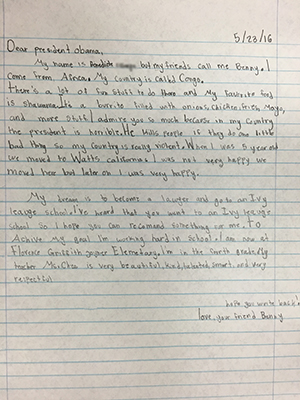 5/23/16
Dear president obama,
My name is but my friends call me Benny. I
come from Africa. My country is called Congo.
There's a lot of fun stuff to do there and my favorite food
is shawarma. It's a burrito filled with onions, chicken, fries, mayo,
and more stuff. I admire you so much because in my country
the president is horrible. He kills people if they do one little
bad thing so my country is really violent. When I was 5 years old
we moved to Watts california. I was not very happy we
moved hear but later on I was very happy.
My dream is to become a lawyer and go to an Ivy
leauge school. I've heard that you went to an Ivy leauge
school so I hope you can recomend something for me. To
Achive my goal I'm working hard in school. I am now at
Florence Griffith joyner Elementary. I'm in the fourth grade. My
teacher Ms. Chea is very beautiful, kind, talented, smart, and very
respectful
hope you write back!
love, your friend Benny